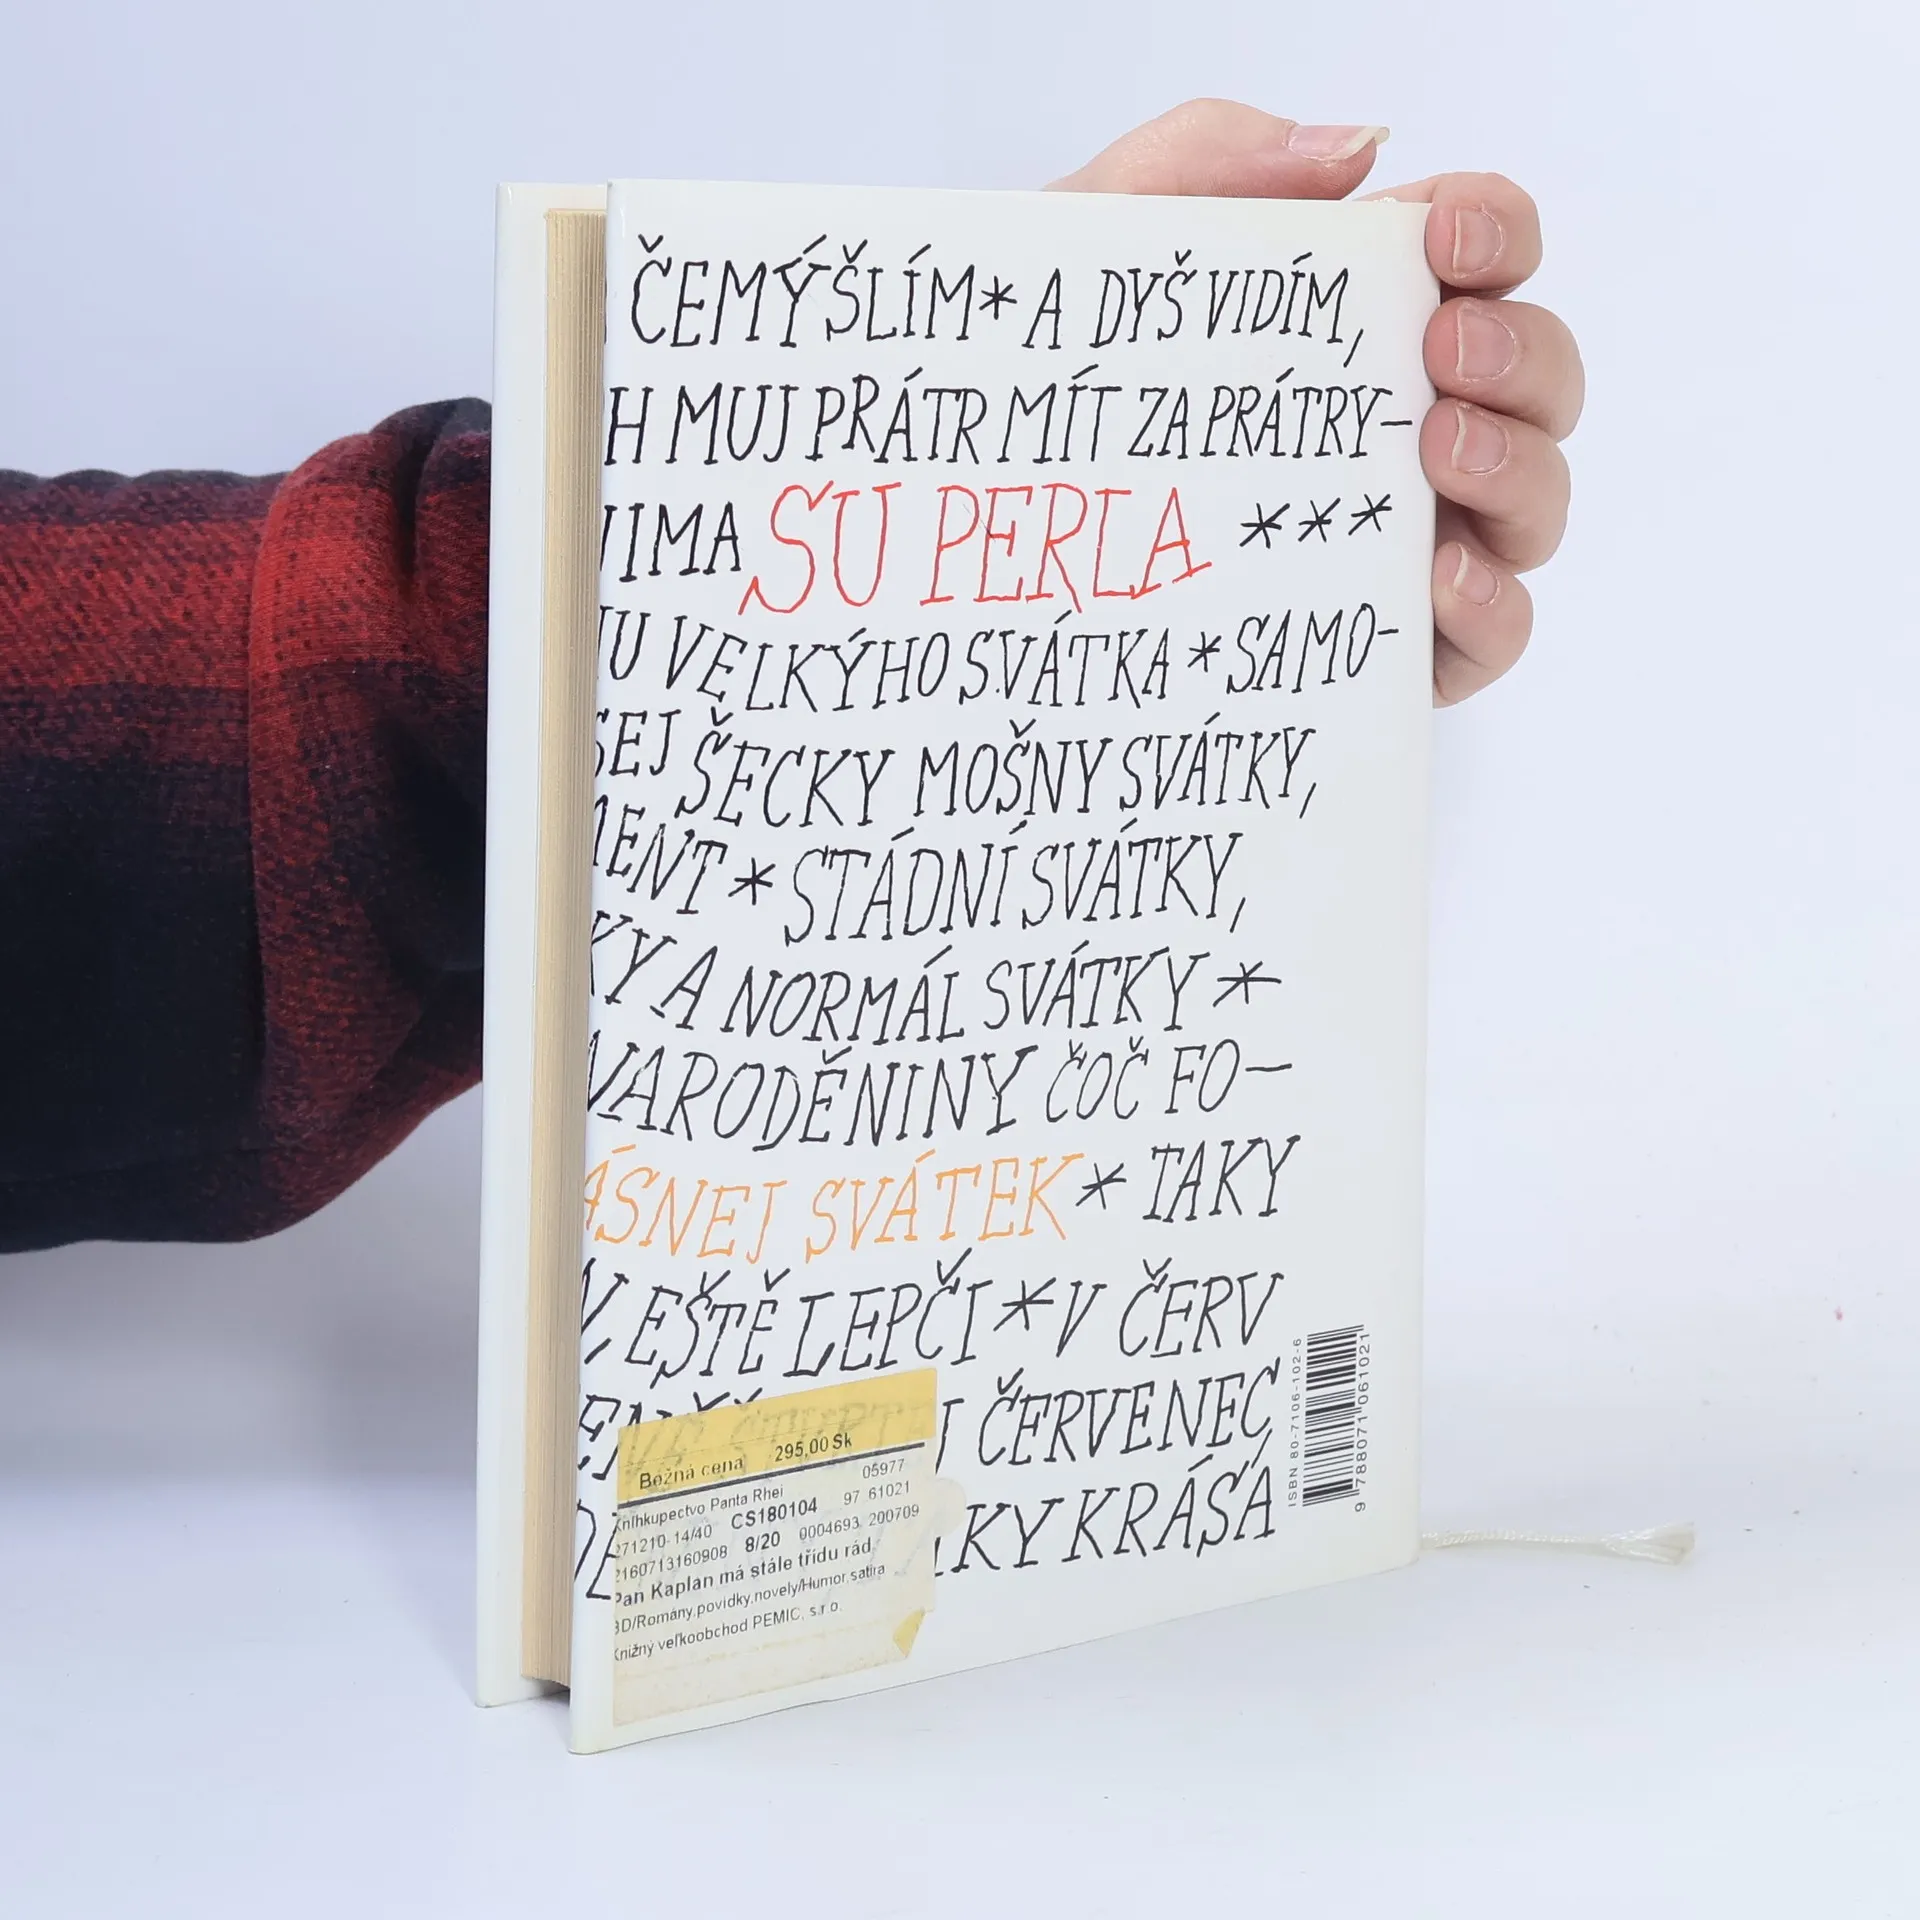 ČEMÝŠLÍM * A DYŠ VIDÍM,
H MUJ PRÁTR MÍT ZA PRÁTRY-
JIMA SU PERLA ***
U VELKÝHO SVÁTKA * SAMO-
SEJ ŠECKY MOŠNY SVÁTKY,
MENT * STÁDNÍ SVÁTKY,
KY A NORMÁL SVÁTKY *
NARODĚNINY ČOČ FO-
ÁSNEJ SVÁTEK * TAKY
EŠTĚ LEPČI * V ČERV
J ČERVENEC
KY KRÁSÁ
ISBN 80-7106-102-6
9 788071 061021
Bežná cena 295,00 Sk
Kníhkupectvo Panta Rhei 05977
271210-14/40 CS180104 97 61021
2160713160908 8/20 0004693 200709
Pan Kaplan má stále třídu rád
BD/Romány,povídky,novely/Humor,satira
Knižný veľkoobchod PEMIC, s.r.o.